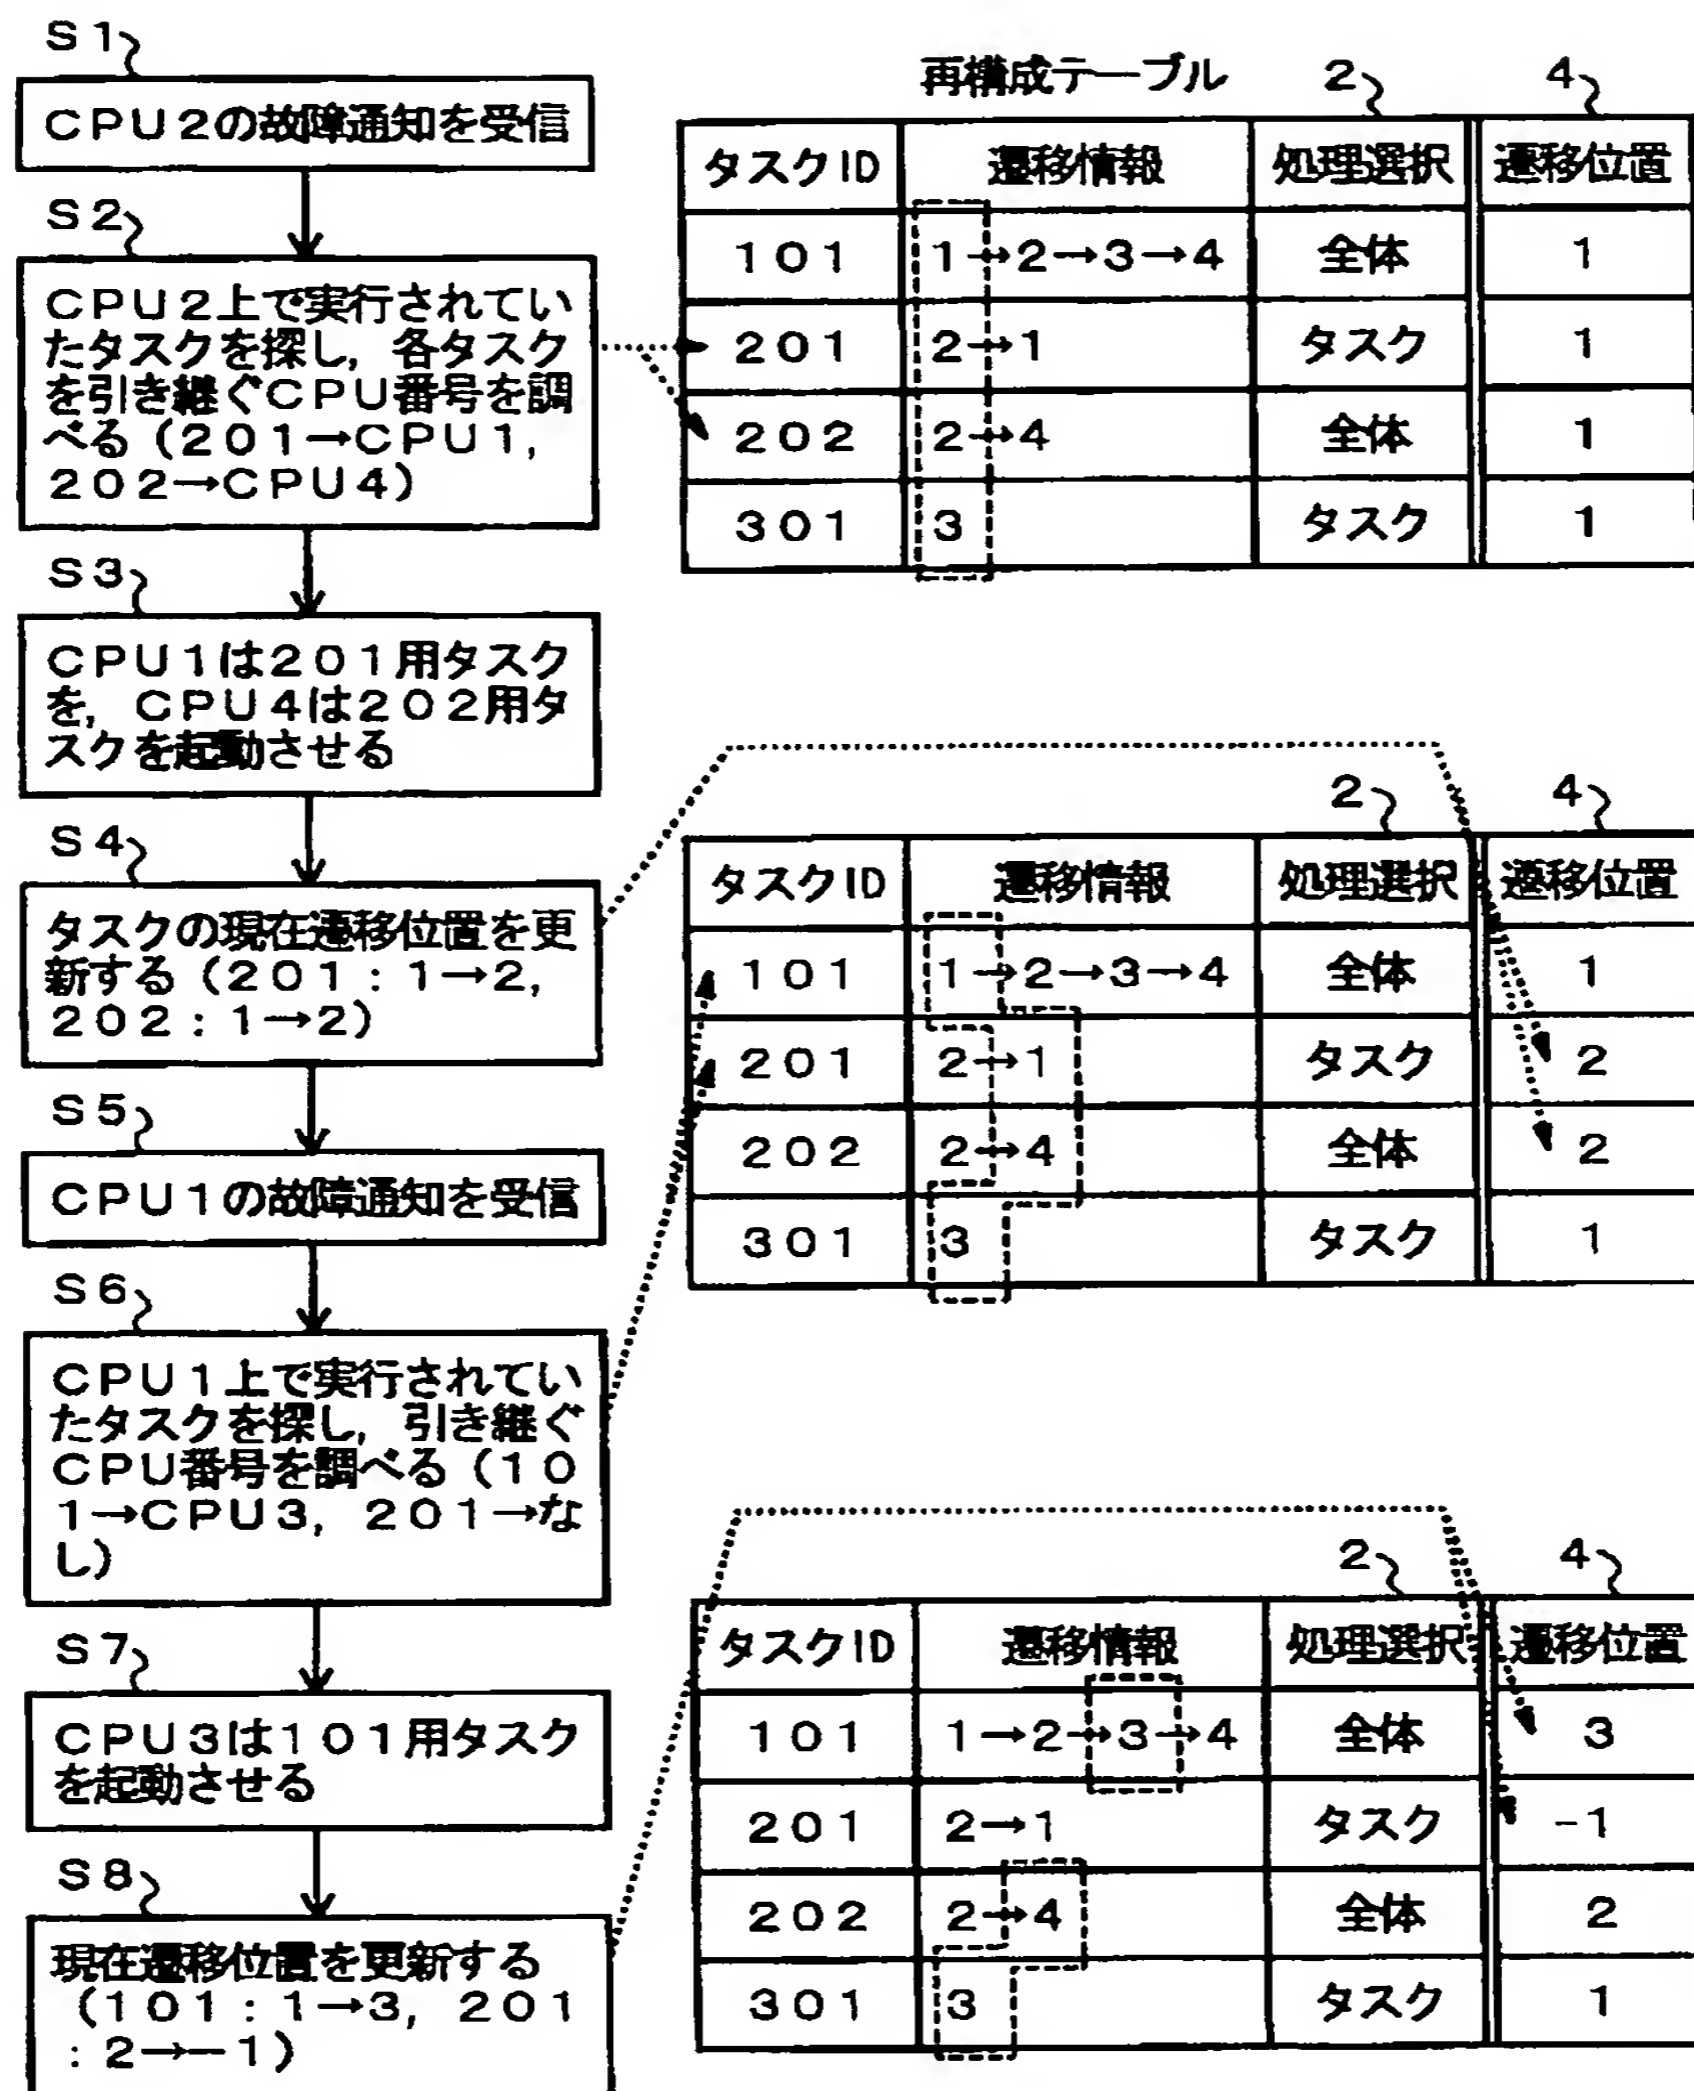 S1
CPU2の故障通知を受信
S2
CPU2上で実行されてい
たタスクを探し，各タスク
を引き継ぐCPU番号を調
べる（201→CPU1，
202→CPU4）
S3
CPU1は201用タスク
を，CPU4は202用タ
スクを起動させる
S4
タスクの現在遷移位置を更
新する（201：1→2，
202：1→2）
S5
CPU1の故障通知を受信
S6
CPU1上で実行されてい
たタスクを探し，引き継ぐ
CPU番号を調べる（10
1→CPU3，201→な
し）
S7
CPU3は101用タスク
を起動させる
S8
現在遷移位置を更新する
（101：1→3，201
：2→−1）
再構成テーブル 2 4
タスクID 遷移情報 処理選択 遷移位置
101 1→2→3→4 全体 1
201 2→1 タスク 1
202 2→4 全体 1
301 3 タスク 1
2 4
タスクID 遷移情報 処理選択 遷移位置
101 1→2→3→4 全体 1
201 2→1 タスク 2
202 2→4 全体 2
301 3 タスク 1
2 4
タスクID 遷移情報 処理選択 遷移位置
101 1→2→3→4 全体 3
201 2→1 タスク -1
202 2→4 全体 2
301 3 タスク 1